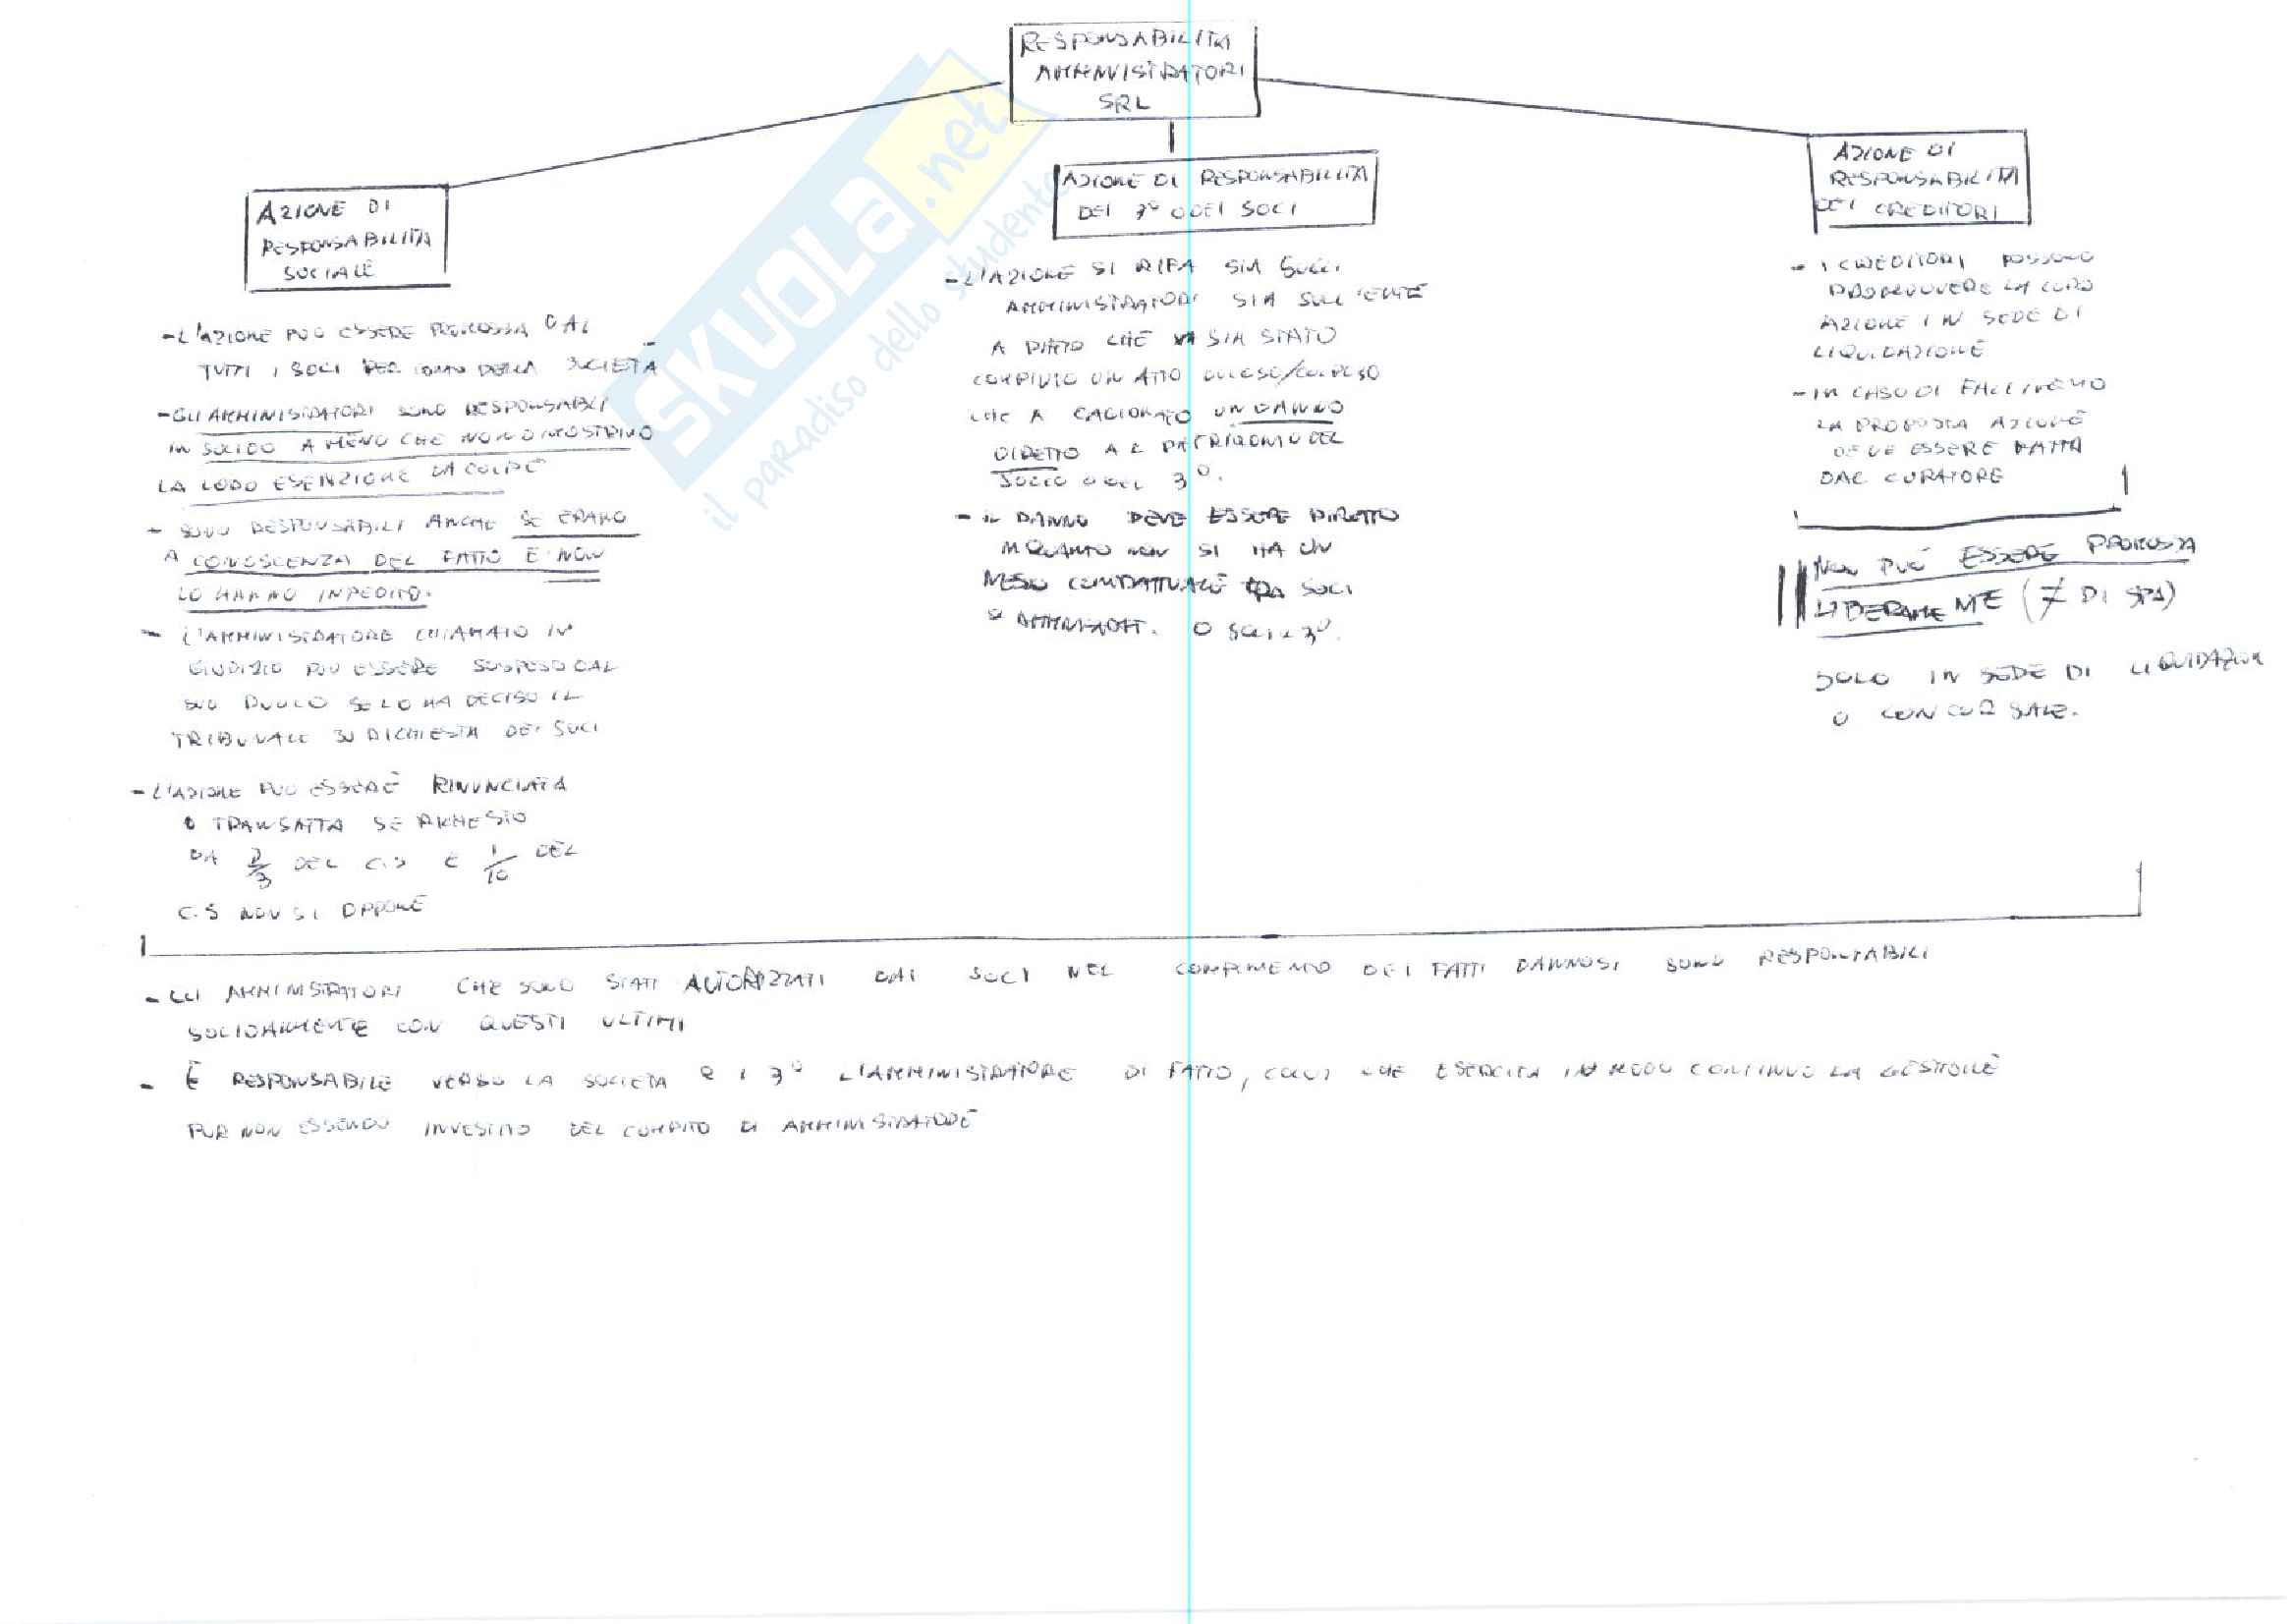 RESPONSABILITÀ
AMMINISTRATORI
SRL
AZIONE DI
RESPONSABILITÀ
SOCIALE
-L'AZIONE PUÒ ESSERE PROMOSSA DAL
TUTTI I SOCI PER CONTO DELLA SOCIETÀ
-GLI AMMINISTRATORI SONO RESPONSABILI
IN SOLIDO A MENO CHE NON DIMOSTRINO
LA LORO ESENZIONE DA COLPE
- SONO RESPONSABILI ANCHE SE ERANO
A CONOSCENZA DEL FATTO E NON
LO HANNO IMPEDITO.
- L'AMMINISTRATORE CHIAMATO IN
GIUDIZIO PUÒ ESSERE SOSPESO DAL
SUO RUOLO SE LO HA DECISO IL
TRIBUNALE SU RICHIESTA DEI SOCI
-L'AZIONE PUÒ ESSERE RINUNCIATA
O TRANSATTA SE RICHIESTO
DA 2/3 DEL C.S E 1/10 DEL
C.S NON SI OPPONE
AZIONE DI RESPONSABILITÀ
DEI 3° O DEI SOCI
-L'AZIONE SI RIFÀ SIA SUGLI
AMMINISTRATORI SIA SULL'ENTE
A PATTO CHE SIA STATO
COMPIUTO UN ATTO DOLOSO/COLPOSO
CHE A CAGIONATO UN DANNO
DIRETTO AL PATRIMONIO DEL
SOCIO O DEL 3°.
- IL DANNO DEVE ESSERE DIRETTO
IN QUANTO NON SI HA UN
NESSO CONTRATTUALE TRA SOCI
E AMMINISTR. O SOCI E 3°.
AZIONE DI
RESPONSABILITÀ
DEI CREDITORI
- I CREDITORI POSSONO
PROMUOVERE LA LORO
AZIONE IN SEDE DI
LIQUIDAZIONE
-IN CASO DI FALLIMENTO
LA PROPOSTA AZIONE
DEVE ESSERE FATTA
DAL CURATORE
NON PUÒ ESSERE PROMOSSA
LIBERAMENTE (≠ DI SPA)
SOLO IN SEDE DI LIQUIDAZIONE
O CONCORSALE.
- GLI AMMINISTRATORI CHE SONO STATI AUTORIZZATI DAI SOCI NEL COMPIMENTO DEI FATTI DANNOSI SONO RESPONSABILI
SOLIDARMENTE CON QUESTI ULTIMI
- È RESPONSABILE VERSO LA SOCIETÀ E I 3° L'AMMINISTRATORE DI FATTO, COLUI CHE ESERCITA IN MODO CONTINUO LA GESTIONE
PUR NON ESSENDO INVESTITO DEL COMPITO DI AMMINISTRATORE
SKUOLA.net
il paradiso dello studente